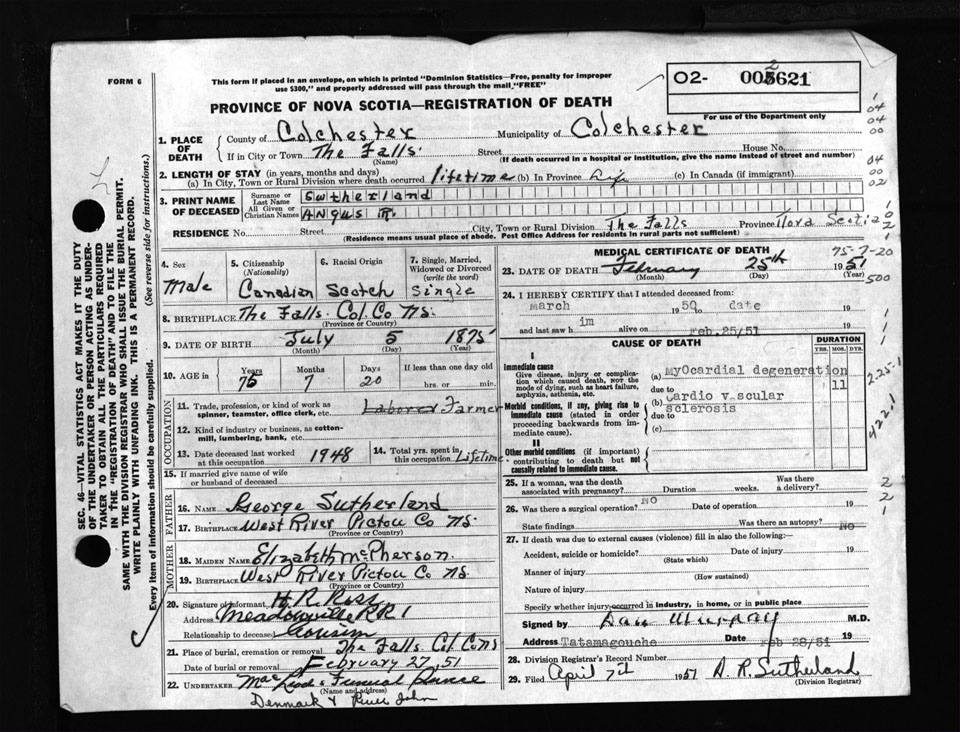 FORM 6
This form if placed in an envelope, on which is printed "Dominion Statistics—Free, penalty for improper
use $300," and properly addressed will pass through the mail "FREE"
PROVINCE OF NOVA SCOTIA—REGISTRATION OF DEATH
02- 002621
For use of the Department only
1. PLACE OF DEATH
County of Colchester Municipality of Colchester
If in City or Town The Falls Street House No.
(Name) (If death occurred in a hospital or institution, give the name instead of street and number)
2. LENGTH OF STAY (in years, months and days)
(a) In City, Town or Rural Division where death occurred lifetime (b) In Province Life (c) In Canada (if immigrant)
3. PRINT NAME OF DECEASED
Surname or Last Name Sutherland
All Given or Christian Names Angus R.
RESIDENCE No. Street City, Town or Rural Division The Falls Province Nova Scotia
(Residence means usual place of abode. Post Office Address for residents in rural parts not sufficient)
4. Sex Male
5. Citizenship (Nationality) Canadian
6. Racial Origin Scotch
7. Single, Married, Widowed or Divorced (write the word) Single
8. BIRTHPLACE The Falls Col. Co NS.
(Province or Country)
9. DATE OF BIRTH July 5 1875
(Month) (Day) (Year)
10. AGE in Years Months Days If less than one day old
75 7 20 hrs. or min.
OCCUPATION
11. Trade, profession, or kind of work as spinner, teamster, office clerk, etc. Laborer Farmer
12. Kind of industry or business, as cotton-mill, lumbering, bank, etc.
13. Date deceased last worked at this occupation 1948
14. Total yrs. spent in this occupation Lifetime
15. If married give name of wife or husband of deceased
FATHER
16. NAME George Sutherland
17. BIRTHPLACE West River Pictou Co NS.
(Province or Country)
MOTHER
18. MAIDEN NAME Elizabeth McPherson.
19. BIRTHPLACE West River Pictou Co NS.
(Province or Country)
20. Signature of informant H. R. Ross
Address Meadowville RR1
Relationship to deceased Cousin
21. Place of burial, cremation or removal The Falls Col. Co NS
Date of burial or removal February 27, 51
22. UNDERTAKER MacLeods Funeral Service
(Name and address)
Denmark & River John
MEDICAL CERTIFICATE OF DEATH
75-7-20
23. DATE OF DEATH February 25th 1951
(Month) (Day) (Year)
500
24. I HEREBY CERTIFY that I attended deceased from
march 1950 date 19
and last saw h im alive on feb.25/51 19
CAUSE OF DEATH
DURATION
YRS. MOS. DYS.
I
Immediate cause
Give disease, injury or complication which caused death, NOT the mode of dying, such as heart failure, asphyxia, asthenia, etc.
(a) myOcardial degeneration 11
due to
Morbid conditions, if any, giving rise to immediate cause (stated in order proceeding backwards from immediate cause).
(b) Cardio v scular
due to sclerosis
(c)
II
Other morbid conditions (if important) contributing to death but not causally related to immediate cause.
422.1
25. If a woman, was the death associated with pregnancy? Duration weeks. Was there a delivery?
26. Was there a surgical operation? NO Date of operation 19
State findings Was there an autopsy? NO
27. If death was due to external causes (violence) fill in also the following:—
Accident, suicide or homicide? Date of injury 19
(State which)
Manner of injury
(How sustained)
Nature of injury
Specify whether injury occurred in industry, in home, or in public place
Signed by Dan Murray M.D.
Address Tatamagouche Date feb 28/51 19
28. Division Registrar's Record Number
29. Filed April 7th 1951 D. R. Sutherland
(Division Registrar)
SEC. 46—VITAL STATISTICS ACT MAKES IT THE DUTY
OF THE UNDERTAKER OR PERSON ACTING AS UNDERTAKER
TO OBTAIN ALL THE PARTICULARS REQUIRED
IN THE "REGISTRATION OF DEATH" AND TO FILE THE
SAME WITH THE DIVISION REGISTRAR WHO SHALL ISSUE THE BURIAL PERMIT.
WRITE PLAINLY WITH UNFADING INK. THIS IS A PERMANENT RECORD.
Every item of information should be carefully supplied. (See reverse side for instructions.)